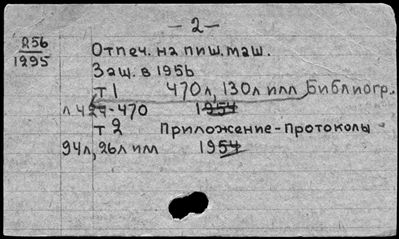 - 2 -
256
1295
Отпеч. на пиш. маш.
Защ. в 1956
т 1 470 л, 130 л илл Библиогр.
л. 424-470 1954
т 2 Приложение - Протоколы
94 л, 26 л илл 1954